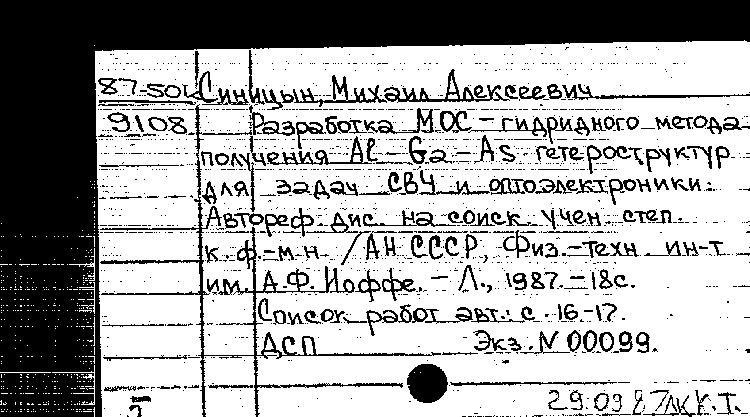 87-50L Синицын, Михаил Алексеевич
9108 Разработка МОС-гидридного метода
получения Al-Ga-As гетероструктур
для задач СВЧ и оптоэлектроники.
Автореф. дис. на соиск. учен. степ.
к. ф.-м.н. /АН СССР, Физ.-техн. ин-т
им. А.Ф. Иоффе. - Л., 1987. - 18с.
Список работ авт.: с. 16-17.
ДСП Экз. N 00099.
29.09.87 К.Т.